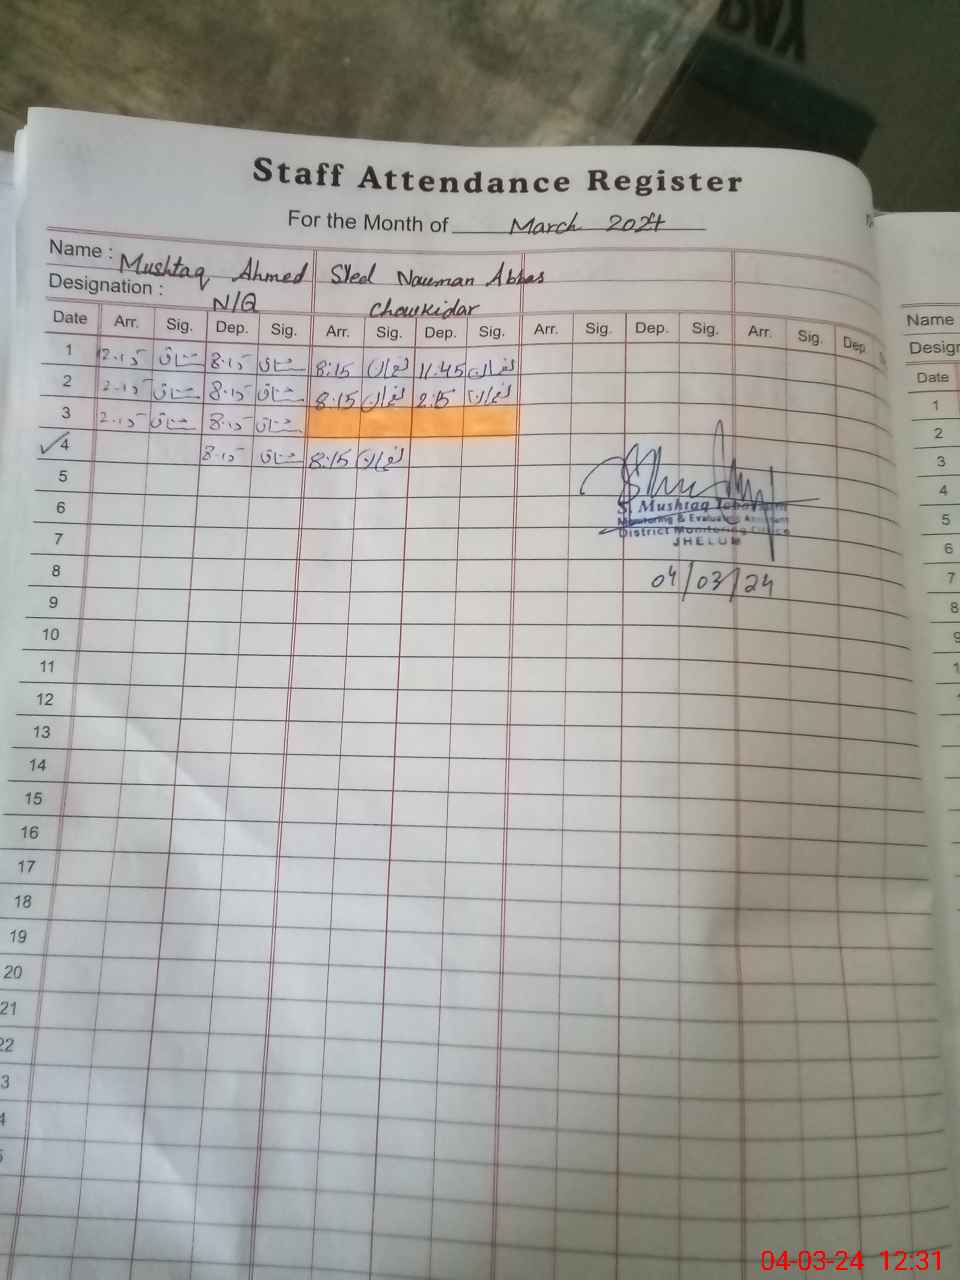 Staff Attendance Register
For the Month of March 2024
Name : Mushtaq Ahmed Syed Nauman Abbas
Designation : N/Q Chowkidar
Date Arr. Sig. Dep. Sig. Arr. Sig. Dep. Sig. Arr. Sig. Dep. Sig. Arr. Sig. Dep. S
1 2.15 مشتاق 8.15 مشتاق 8:15 نعمان 11.45 نعمان
2 2.15 مشتاق 8.15 مشتاق 8.15 نعمان 2.15 نعمان
3 2.15 مشتاق 8.15 مشتاق
4 8.15 مشتاق 8:15 نعمان
5
6
7
8
9
10
11
12
13
14
15
16
17
18
19
20
21
22
3
4
5
S. Mushtaq
Monitoring & Evaluation Assistant
District Monitoring Office
JHELUM
04/03/24
Name
Desig
Date
1
2
3
4
5
6
7
8
9
1
04-03-24 12:31